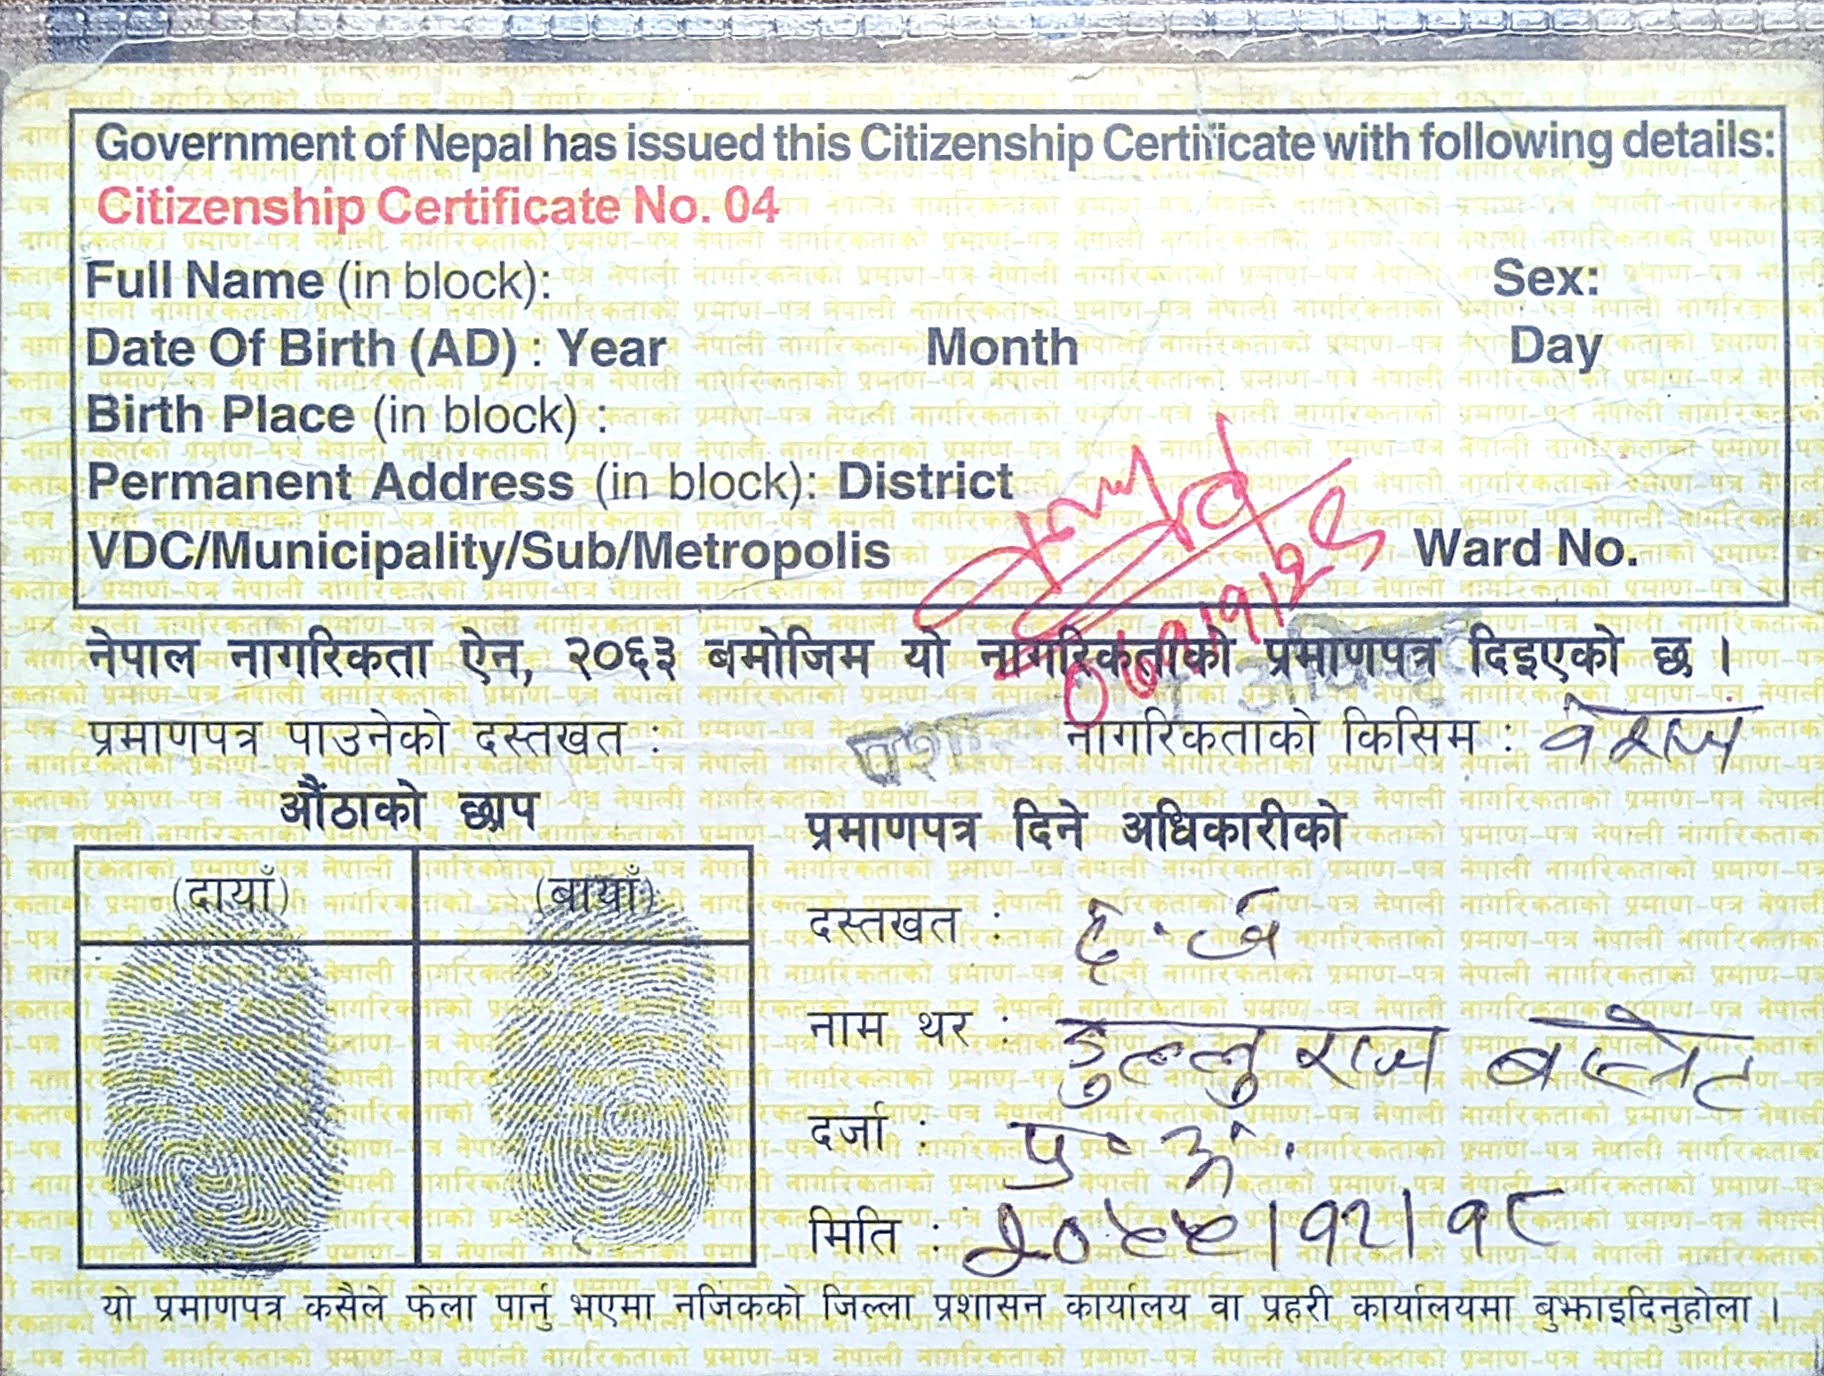 Government of Nepal has issued this Citizenship Certificate with following details:
Citizenship Certificate No. 04
Full Name (in block): Sex:
Date Of Birth (AD) : Year Month Day
Birth Place (in block) :
Permanent Address (in block): District
VDC/Municipality/Sub/Metropolis Ward No.
नेपाल नागरिकता ऐन, २०६३ बमोजिम यो नागरिकताको प्रमाणपत्र दिइएको छ ।
प्रमाणपत्र पाउनेको दस्तखत : नागरिकताको किसिम : वंशज
औंठाको छाप
प्रमाणपत्र दिने अधिकारीको
(दायाँ) (बायाँ)
दस्तखत :
नाम थर : डुल्लुराज बस्नेत
दर्जा : प्र. अ.
मिति : २०५५।१२।१८
यो प्रमाणपत्र कसैले फेला पार्नु भएमा नजिकको जिल्ला प्रशासन कार्यालय वा प्रहरी कार्यालयमा बुझाइदिनुहोला ।